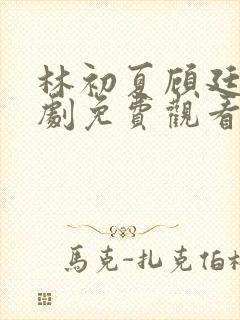 林初夏顾廷
劇免費觀看
馬克-扎克伯格